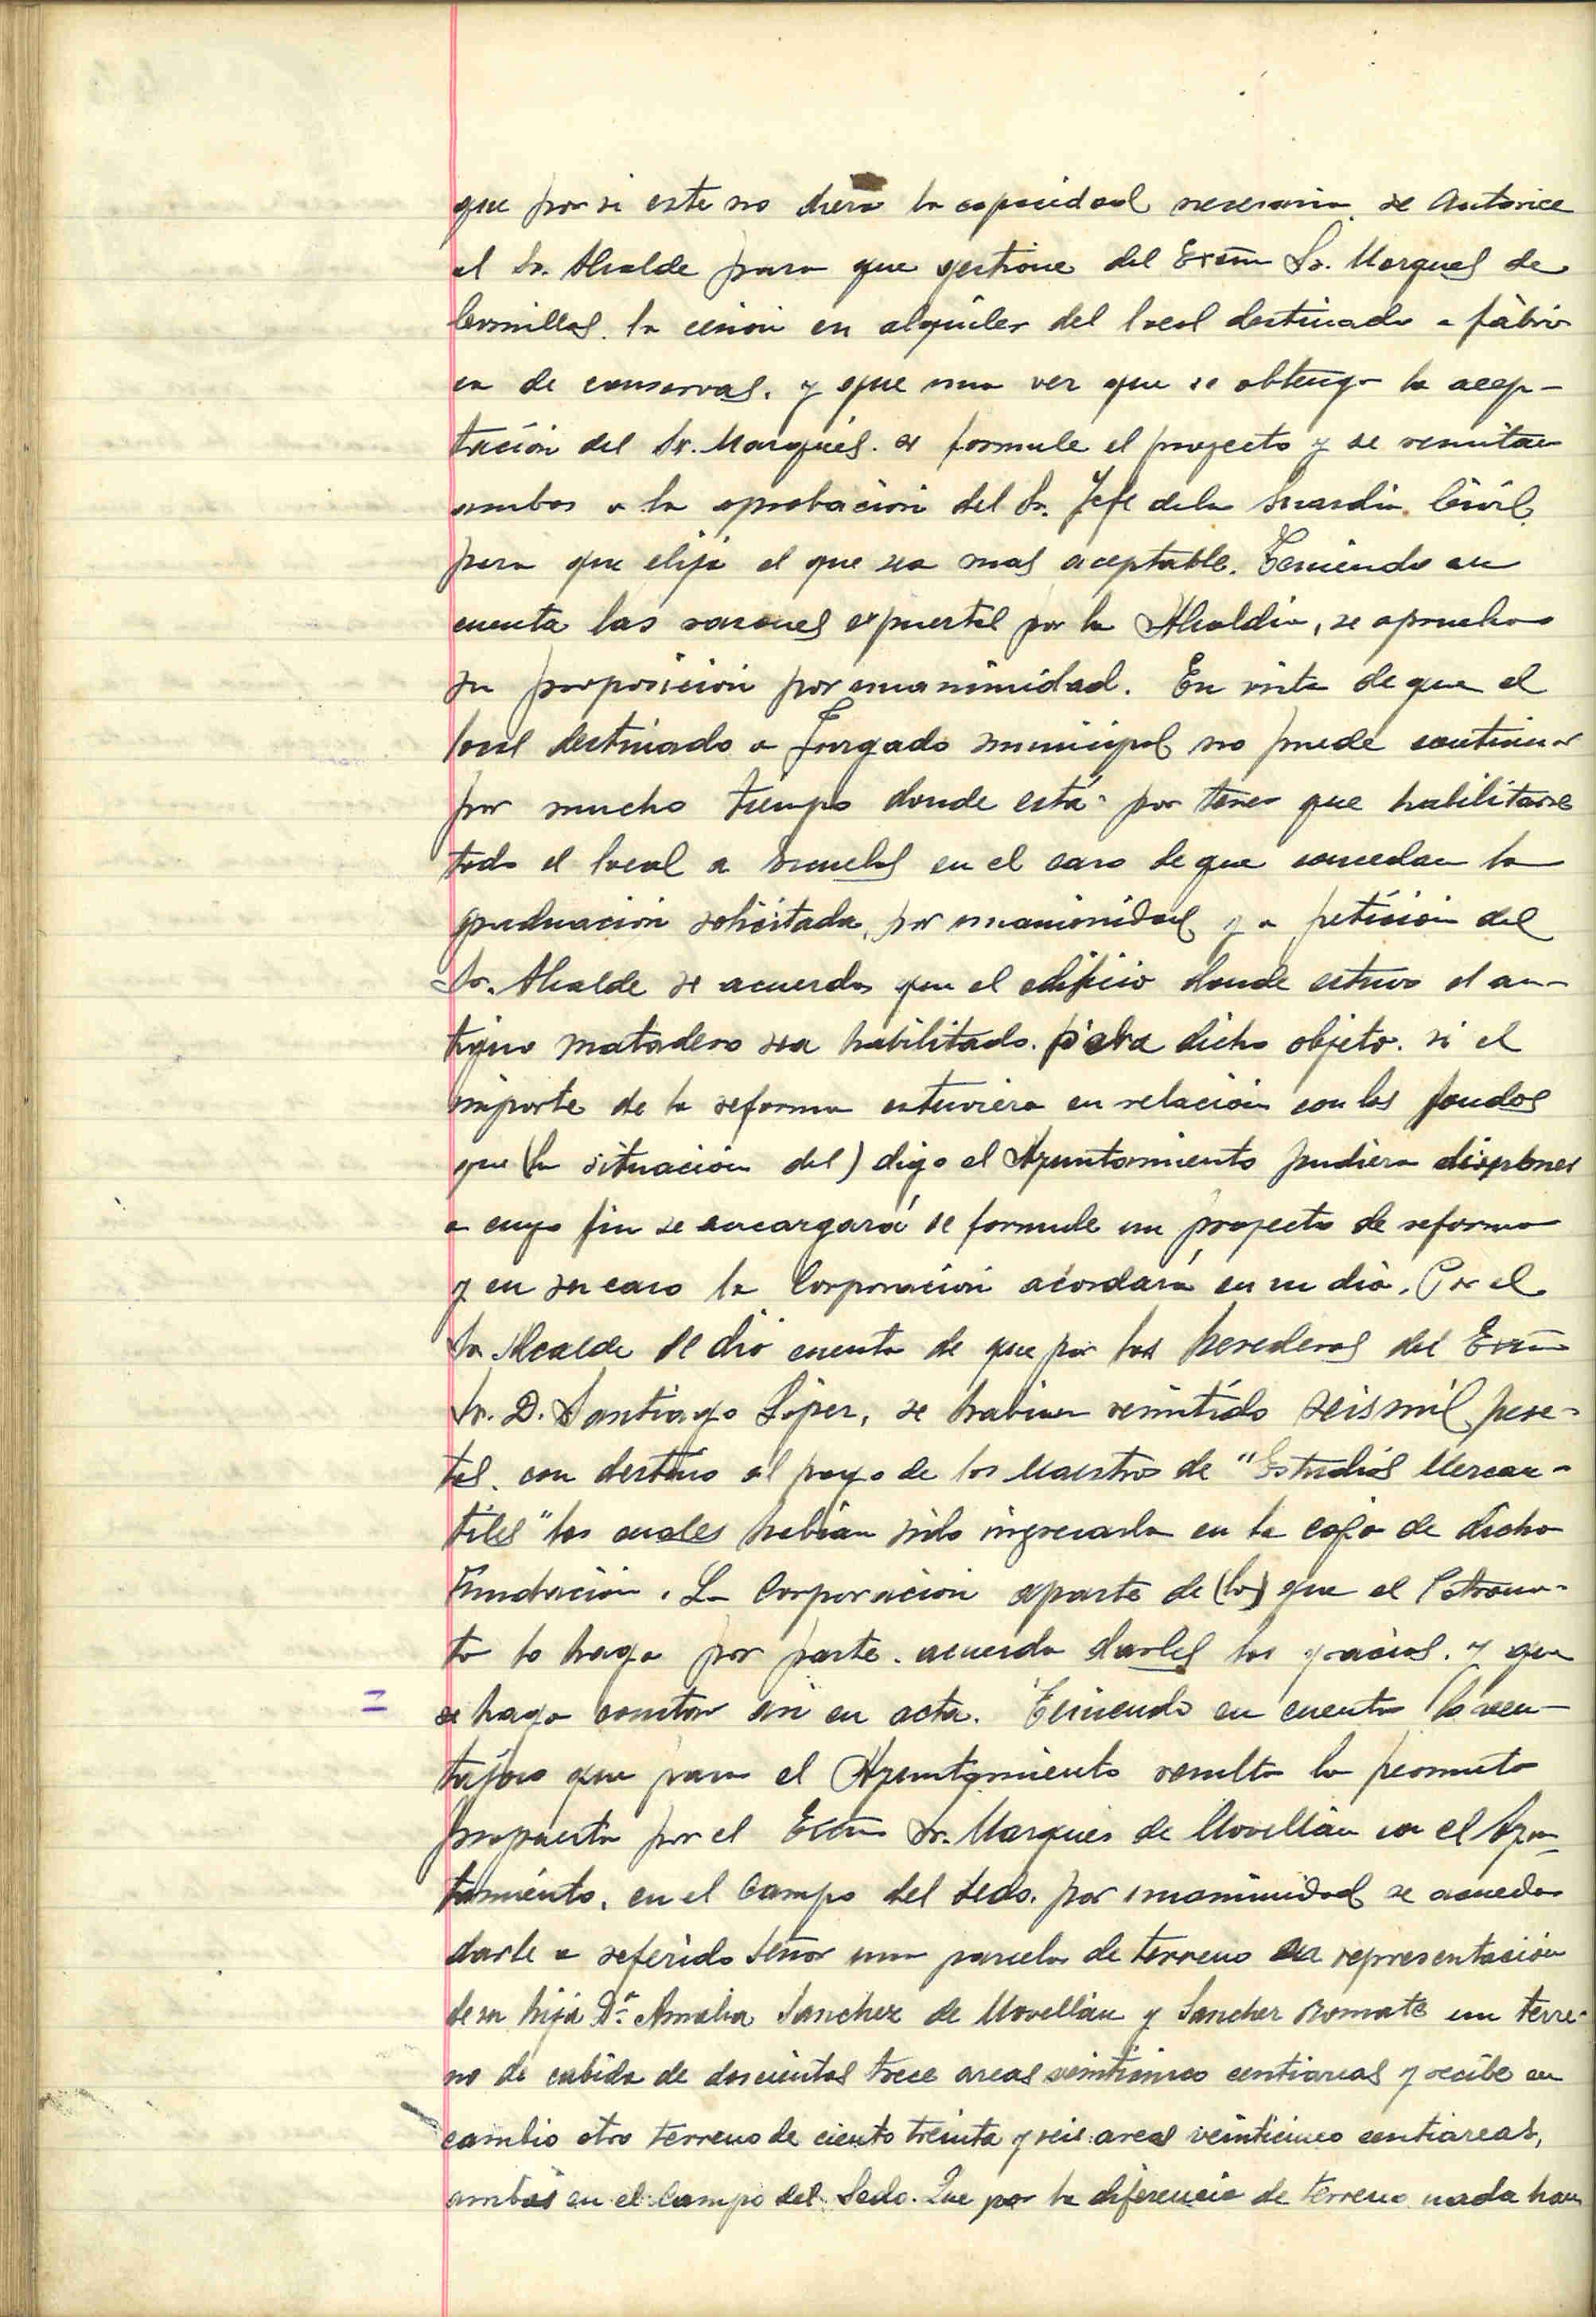 que por si este no diera la capacidad necesaria se autorice
al Sr. Alcalde para que gestione del Excmo Sr. Marques de
Comillas. la cesion en alquiler del local destinado a fábri
ca de conservas. y que una vez que se obtenga la acep-
tación del Sr. Marqués. se formule el proyecto y se remitan
ambos a la aprobacion del Sr. Jefe dela Guardia Civil
para que elija el que sea mas aceptable. Teniendo en
cuenta las razones expuestas por la Alcaldia, se aprueba
su proposicion por unanimidad. En vista de que el
local destinado a Juzgado municipal no puede continuar
por mucho tiempo donde está por tener que habilitarse
todo el local a Escuelas en el caso de que concedan la
graduacion solicitada, por unanimidad y a peticion del
Sr. Alcalde se acuerda que el edificio donde estuvo el an-
tiguo matadero sea habilitado. para dicho objeto. si el
importe de la reforma estuviera en relación con los fondos
que (la situación del) digo el Ayuntamiento pudiera disponer
a cuyo fin se encargará se formule un proyecto de reforma
y en su caso la Corporacion acordará en su dia. Por el
Sr Alcalde se dio cuenta de que por los herederos del Excmo
Sr. D. Santiago López, se habian remitido seis mil pese-
tas. con destino al pago de los Maestros de "Estudios Mercan-
tiles" las cuales habian sido ingresada en la caja de dicha
Fundacion. La Corporacion aparte de (lo) que el Patrona-
to lo haga por parte. acuerda darles las gracias. y que
se haga constar asi en acta. Teniendo en cuenta lo ven-
tajoso que para el Ayuntamiento resulta la permuta
propuesta por el Excmo Sr. Marques de Movellán con el Ayun
tamiento. en el Campo del Sedo. por unanimidad se acuerda
darle a referido Señor una parcela de terreno en representación
de su hija Dª Amalia Sanchez de Movellán y Sanchez Romate un terre-
no de cabida de doscientas trece areas veinticinco centiareas y recibe en
cambio otro terreno de ciento treinta y seis areas veinticinco centiareas,
ambos en el Campo del Sedo. Que por la diferencia de terreno nada han